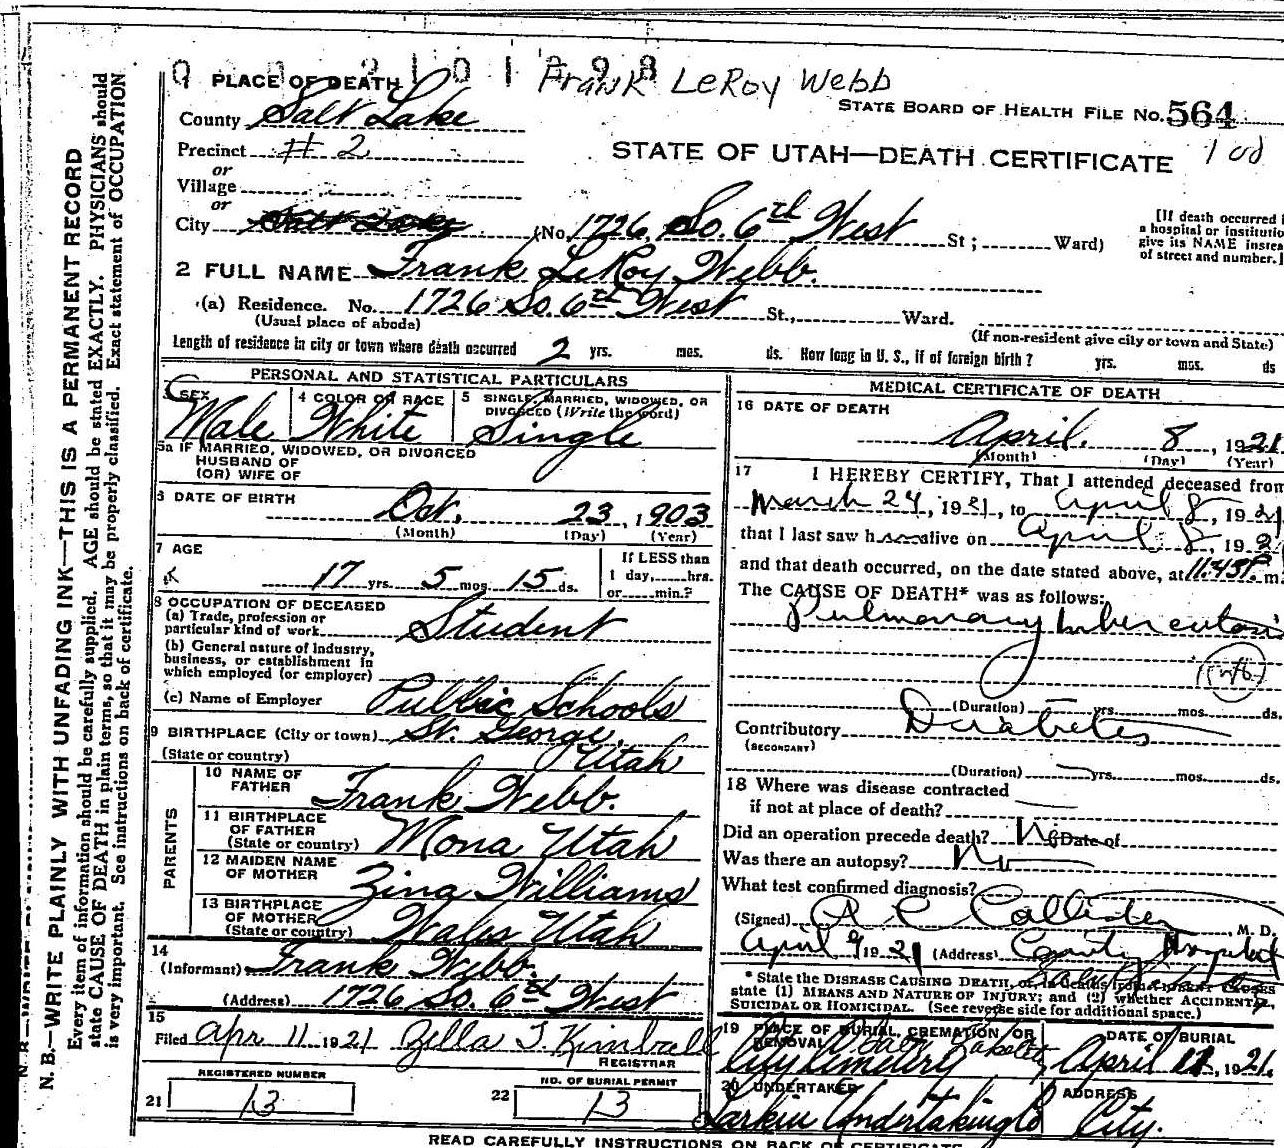 Frank LeRoy Webb
PLACE OF DEATH
STATE BOARD OF HEALTH FILE No. 564
County Salt Lake
Precinct # 2
STATE OF UTAH—DEATH CERTIFICATE
or
Village
or
City Salt Lake (No. 1726 So. 6th West St; Ward)
[If death occurred i
a hospital or institutio
give its NAME instea
of street and number.]
2 FULL NAME Frank LeRoy Webb.
(a) Residence. No. 1726 So. 6th West St., Ward.
(Usual place of abode)
(If non-resident give city or town and State)
Length of residence in city or town where death occurred 2 yrs. mos. ds. How long in U. S., if of foreign birth? yrs. mos. ds
PERSONAL AND STATISTICAL PARTICULARS
3 SEX
Male
4 COLOR OR RACE
White
5 SINGLE, MARRIED, WIDOWED, OR
DIVORCED (Write the word)
Single
5a IF MARRIED, WIDOWED, OR DIVORCED
HUSBAND OF
(OR) WIFE OF
6 DATE OF BIRTH
Oct. 23, 1903
(Month) (Day) (Year)
7 AGE
17 yrs. 5 mos. 15 ds.
If LESS than
1 day, hrs.
or min.?
8 OCCUPATION OF DECEASED
(a) Trade, profession or
particular kind of work Student
(b) General nature of Industry,
business, or establishment in
which employed (or employer)
(c) Name of Employer Public Schools
9 BIRTHPLACE (City or town) St. George,
(State or country) Utah
PARENTS
10 NAME OF
FATHER Frank Webb.
11 BIRTHPLACE
OF FATHER
(State or country) Mona Utah
12 MAIDEN NAME
OF MOTHER Zina Williams
13 BIRTHPLACE
OF MOTHER
(State or country) Wales Utah
14
(Informant) Frank Webb.
(Address) 1726 So. 6th West
15
Filed Apr 11 1921 Zella T. Kimball
REGISTRAR
REGISTERED NUMBER
21 13
NO. OF BURIAL PERMIT
22 13
MEDICAL CERTIFICATE OF DEATH
16 DATE OF DEATH
April. 8, 1921
(Month) (Day) (Year)
17 I HEREBY CERTIFY, That I attended deceased from
March 24, 1921, to April 8, 1921
that I last saw h alive on April 8, 192
and that death occurred, on the date stated above, at 11:45P. m
The CAUSE OF DEATH* was as follows:
Pulmonary tuberculosis
(Duration) yrs. mos. ds.
Contributory Diabetes
(SECONDARY)
(Duration) yrs. mos. ds.
18 Where was disease contracted
if not at place of death?
Did an operation precede death? No Date of
Was there an autopsy? No
What test confirmed diagnosis?
(Signed) A C Callister, M. D.
April 9 1921 (Address) County Hospital
* State the DISEASE CAUSING DEATH, or, in
state (1) MEANS AND NATURE OF INJURY; and (2) whether ACCIDENTAL,
SUICIDAL OR HOMICIDAL. (See reverse side for additional space.)
19 PLACE OF BURIAL, CREMATION, OR
REMOVAL
City Cemetery
DATE OF BURIAL
April 11, 1921.
20 UNDERTAKER
Larkin Undertaking Co
ADDRESS
City.
READ CAREFULLY INSTRUCTIONS ON BACK OF CERTIFICATE
N. B.—WRITE PLAINLY WITH UNFADING INK—THIS IS A PERMANENT RECORD
Every item of information should be carefully supplied. AGE should be stated EXACTLY. PHYSICIANS should
state CAUSE OF DEATH in plain terms, so that it may be properly classified. Exact statement of OCCUPATION
is very important. See instructions on back of certificate.